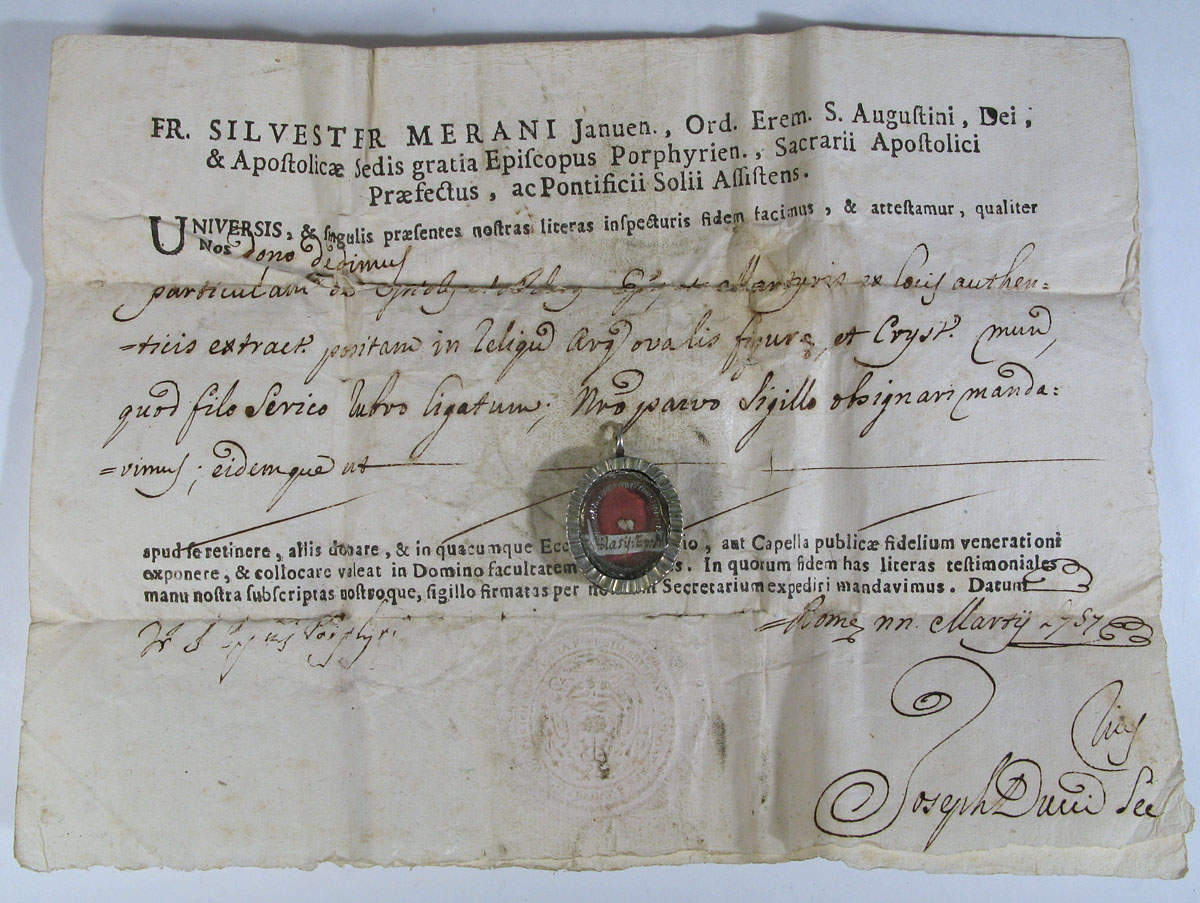 FR. SILVESTER MERANI Januen., Ord. Erem. S. Augustini, Dei,
& Apostolicæ Sedis gratia Episcopus Porphyrien., Sacrarii Apostolici
Præfectus, ac Pontificii Solii Assistens.
UNIVERSIS, & singulis præsentes nostras literas inspecturis fidem facimus, & attestamur, qualiter
Nos dono dedimus
particulam Martyris ex locis authen=
=ticis extract. positam in Reliqu Arg ovalis figuræ, et Cryst. mun,
quod filo Serico rubro ligatum, Nro parvo Sigillo obsignari manda=
=vimus; eidemque ut
apud se retinere, aliis donare, & in quacumque Ecc io, aut Capella publicæ fidelium venerationi
exponere, & collocare valeat in Domino facultatem s. In quorum fidem has literas testimoniales
manu nostra subscriptas nostroque, sigillo firmatas per Secretarium expediri mandavimus. Datum
=Romæ Martij 1757
Joseph Sec